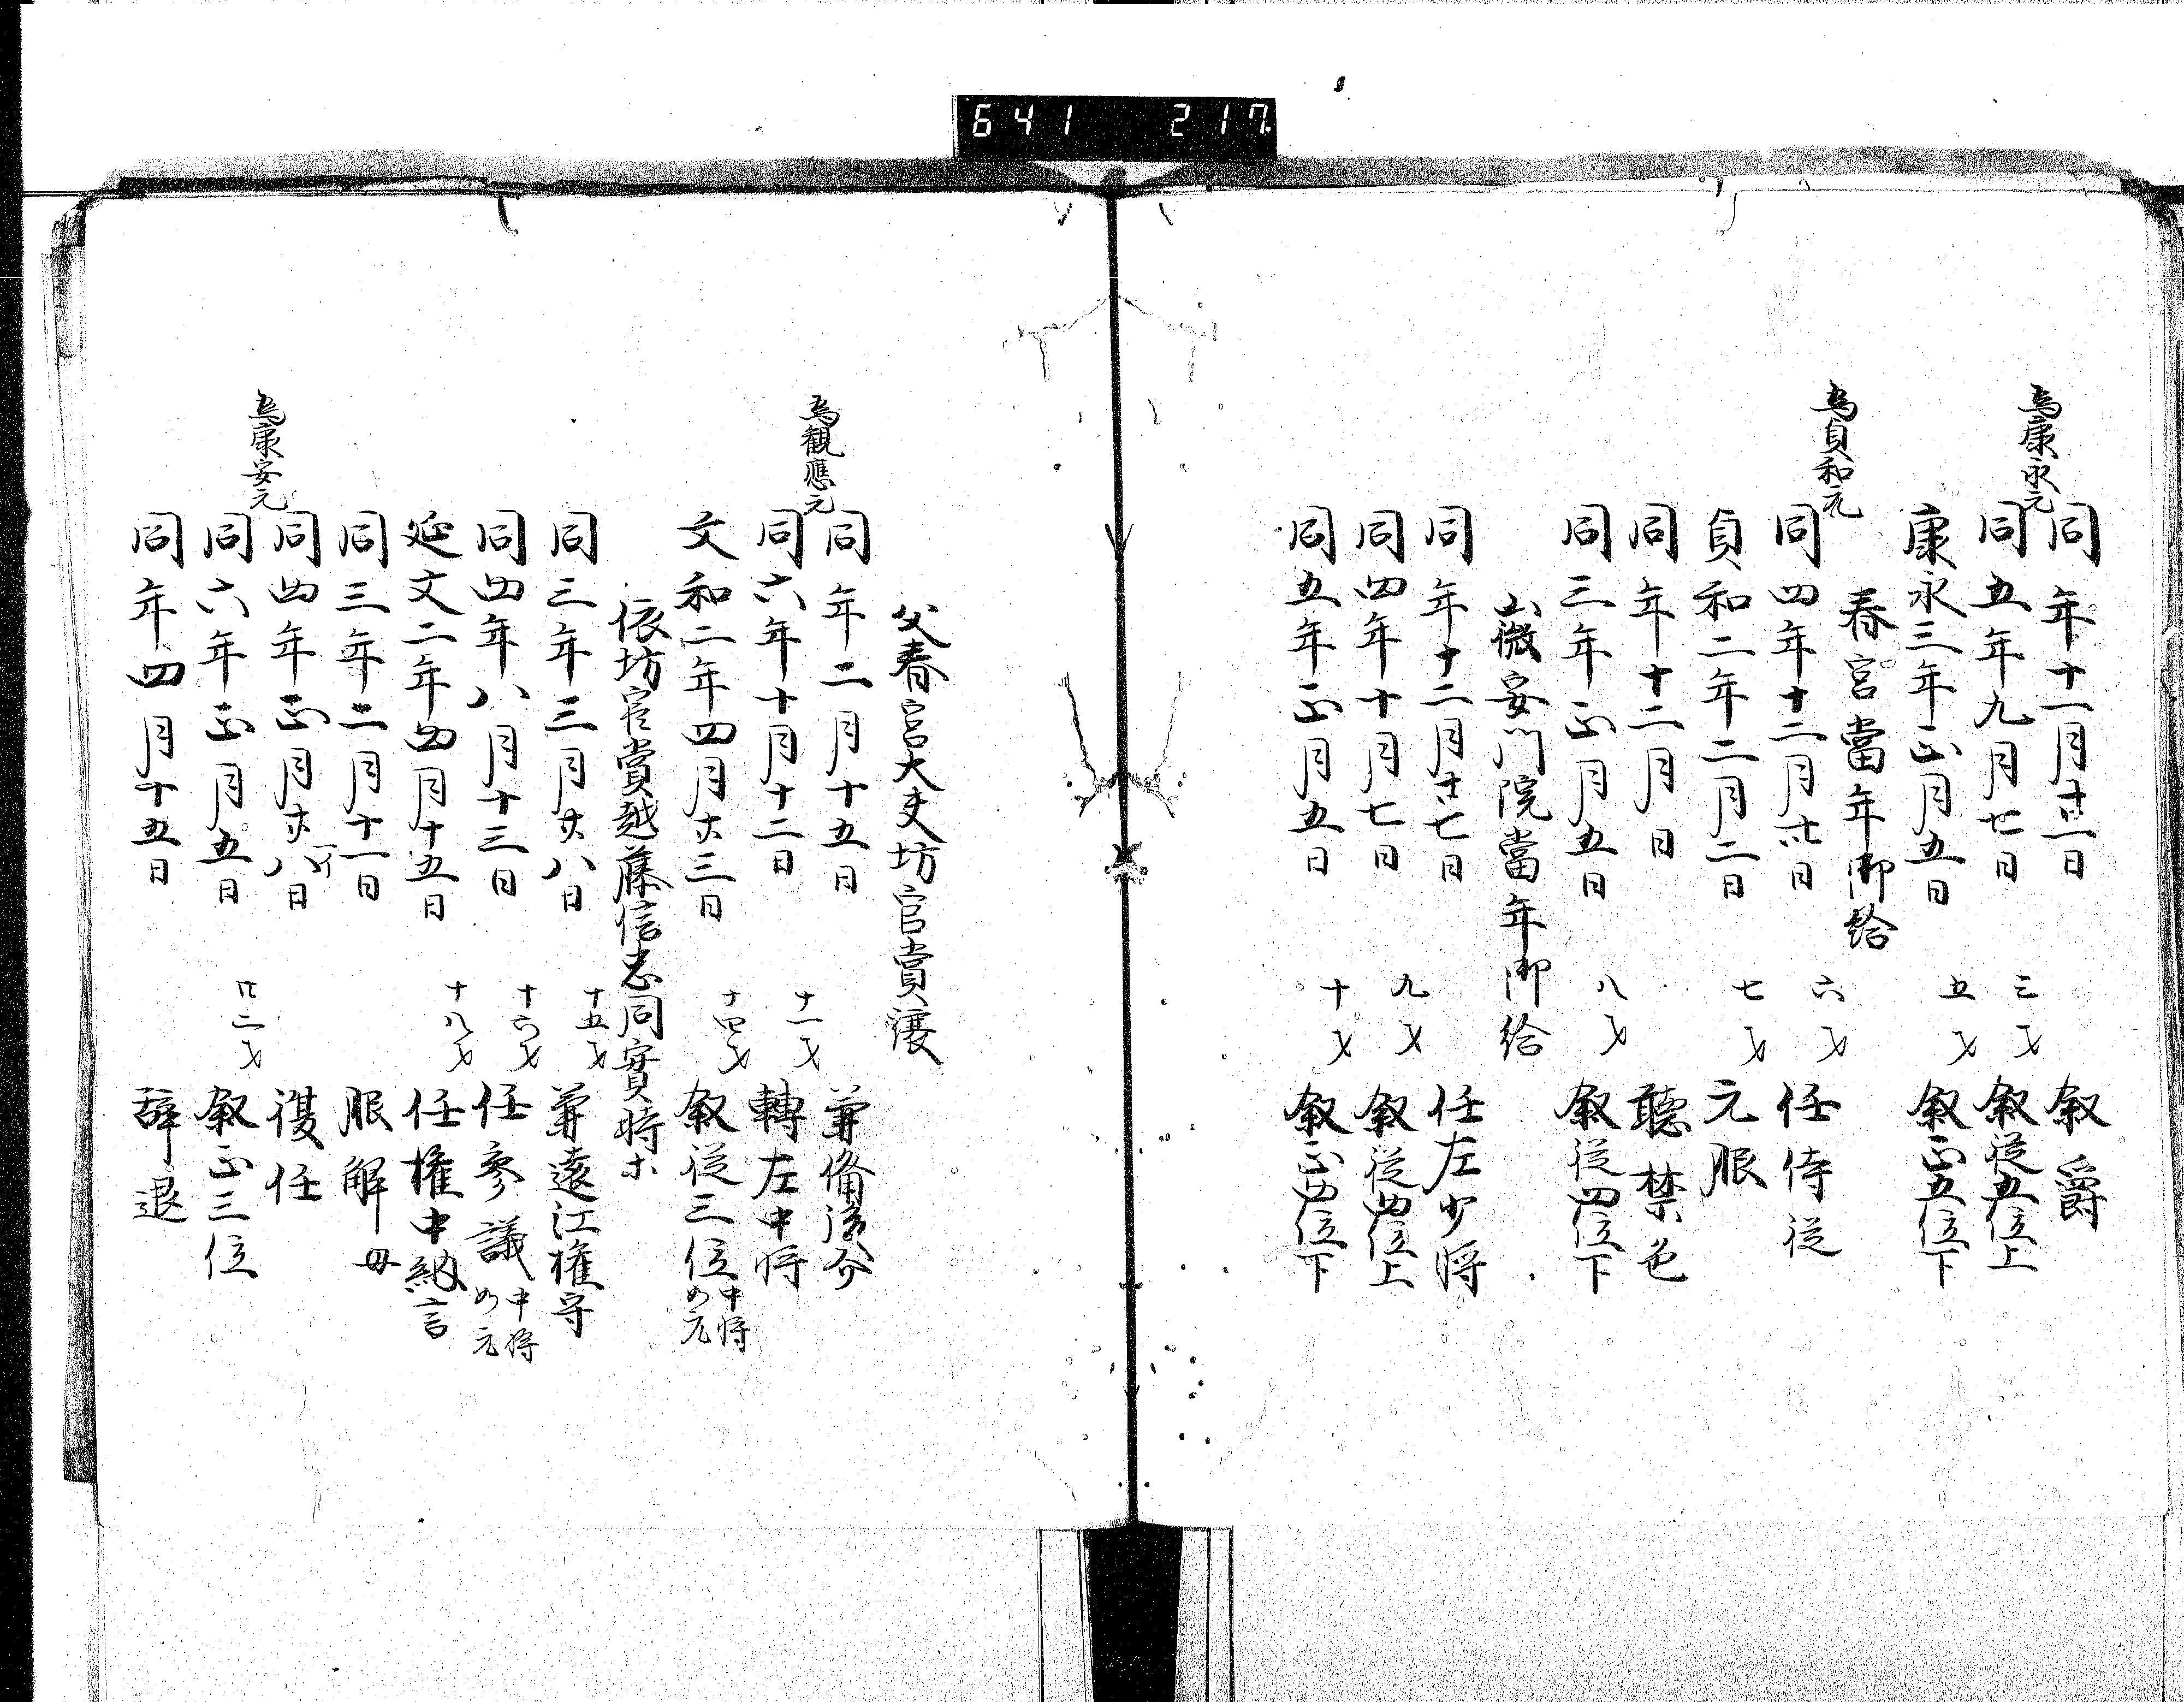 641 217
同年十一月廿一日 叙爵
為康永元
同五年九月七日 三才 叙従五位上
康永三年正月五日 五才 叙正五位下
春宮當年御給
為貞和元
同四年十二月日 六才 任侍従
貞和二年二月二日 七才 元服
同年十二月日 聴禁色
同三年正月五日 八才 叙従四位下
徽安門院當年御給
同年十二月廿七日 任左少将
同四年十月七日 九才 叙従四位上
同五年正月五日 十才 叙正四位下
父春宮大夫坊官賞譲
同年二月十五日 兼備後介
為観應元
同六年十月十二日 十一才 轉左中将
文和二年四月廿三日 十四才 叙従三位 中将如元
依坊官賞越藤信忠同實時等
同三年三月廿八日 十五才 兼遠江権守
同四年八月十三日 十六才 任参議 中将如元
延文二年四月十五日 十八才 任権中納言
同三年二月十一日 服解 母
同四年正月廿八日 復任
為康安元
同六年正月五日 廿二才 叙正三位
同年四月十五日 辞退